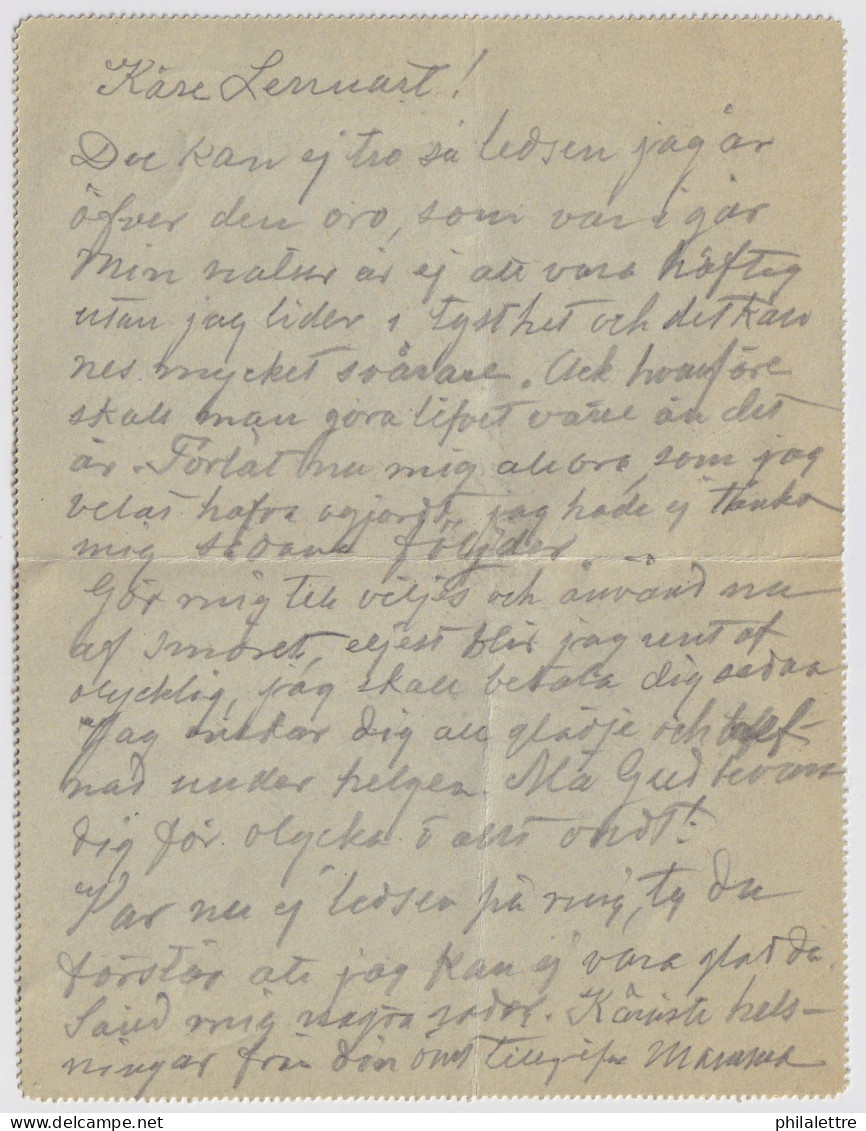 Käre Lennart!
Du kan ej tro så ledsen jag är
öfver den oro, som var i går
Min natur är ej att vara häftig
utan jag lider i tysthet och det kän
nes mycket svårare. Ack hvarföre
skall man göra lifvet värre än det
är. Förlåt nu mig all oro, som jag
velat hafva ogjordt, jag hade ej tänkt
mig sådana följder
Gör mig till viljes och använd nu
af smöret, eljest blir jag rent af
olycklig, jag skall betala dig sedan
Jag önskar dig all glädje och
nad under helgen. Må Gud bevara
dig för olycka o allt ondt!
Var nu ej ledsen på mig, ty du
förstår att jag kan ej vara glad då.
Sänd mig några rader. Käraste hels-
ningar från din ömt Mamma
philalettre